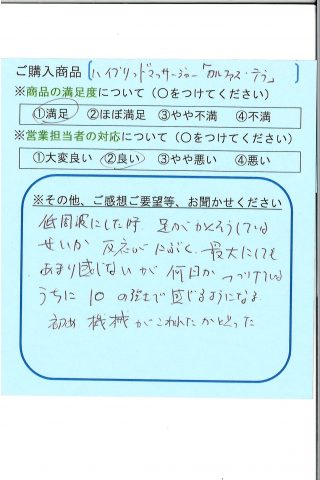 ご購入商品 [ハイブリッドマッサージャー「カルファス・テラ」]
※商品の満足度について（○をつけてください）
①満足 ②ほぼ満足 ③やや不満 ④不満
※営業担当者の対応について（○をつけてください）
①大変良い ②良い ③やや悪い ④悪い
※その他、ご感想ご要望等、お聞かせください
低周波にした時 足がかくろうしている
せいか 反応がにぶく、最大にしても
あまり感じないが 何日か つづけている
うちに 10 の強さで感じるようになる
初め 機械がこわれたかと思った